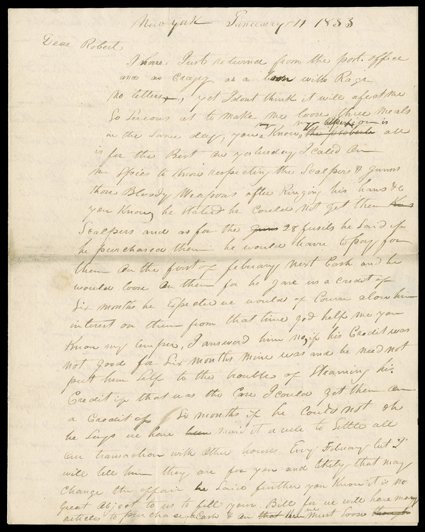 New york January 11 1833
Dear Robert
I have Just returned from the post office
and as crazy as a with Rage
no letters, yet I dont think it will afect me
So Serious as to make me loose three meals
in the Same day, you Know, all
is for the Best on yesterday I caled on
respecting the Scalpers & guns
those Bloody Weapons after Ringing his hands &c
you Know, he Stated he Could not get them
Scalpers and as for the 28 fusils he Said if
he purchased them he would have to pay for
them on the first of february next Cash and he
would loose on them for he gave us a credit of
Six months he Expected we would of Course alow him
interest on them from that time god help me you
Know my temper, I answerd him if his Credit was
not good for Six months mine was and he need not
put him Self to the trouble of his
Credit if that was the Case I could get them on
a Credit of Six months if he Could not
he Says we have made it a rule to Settle all
our transaction with other houses Evry but I
will tell him they are for you and likely that may
Change the affair he Said further you Know it is no
great object to us to fill your Bill for we will have many
articles to purchase Cash & on must loose